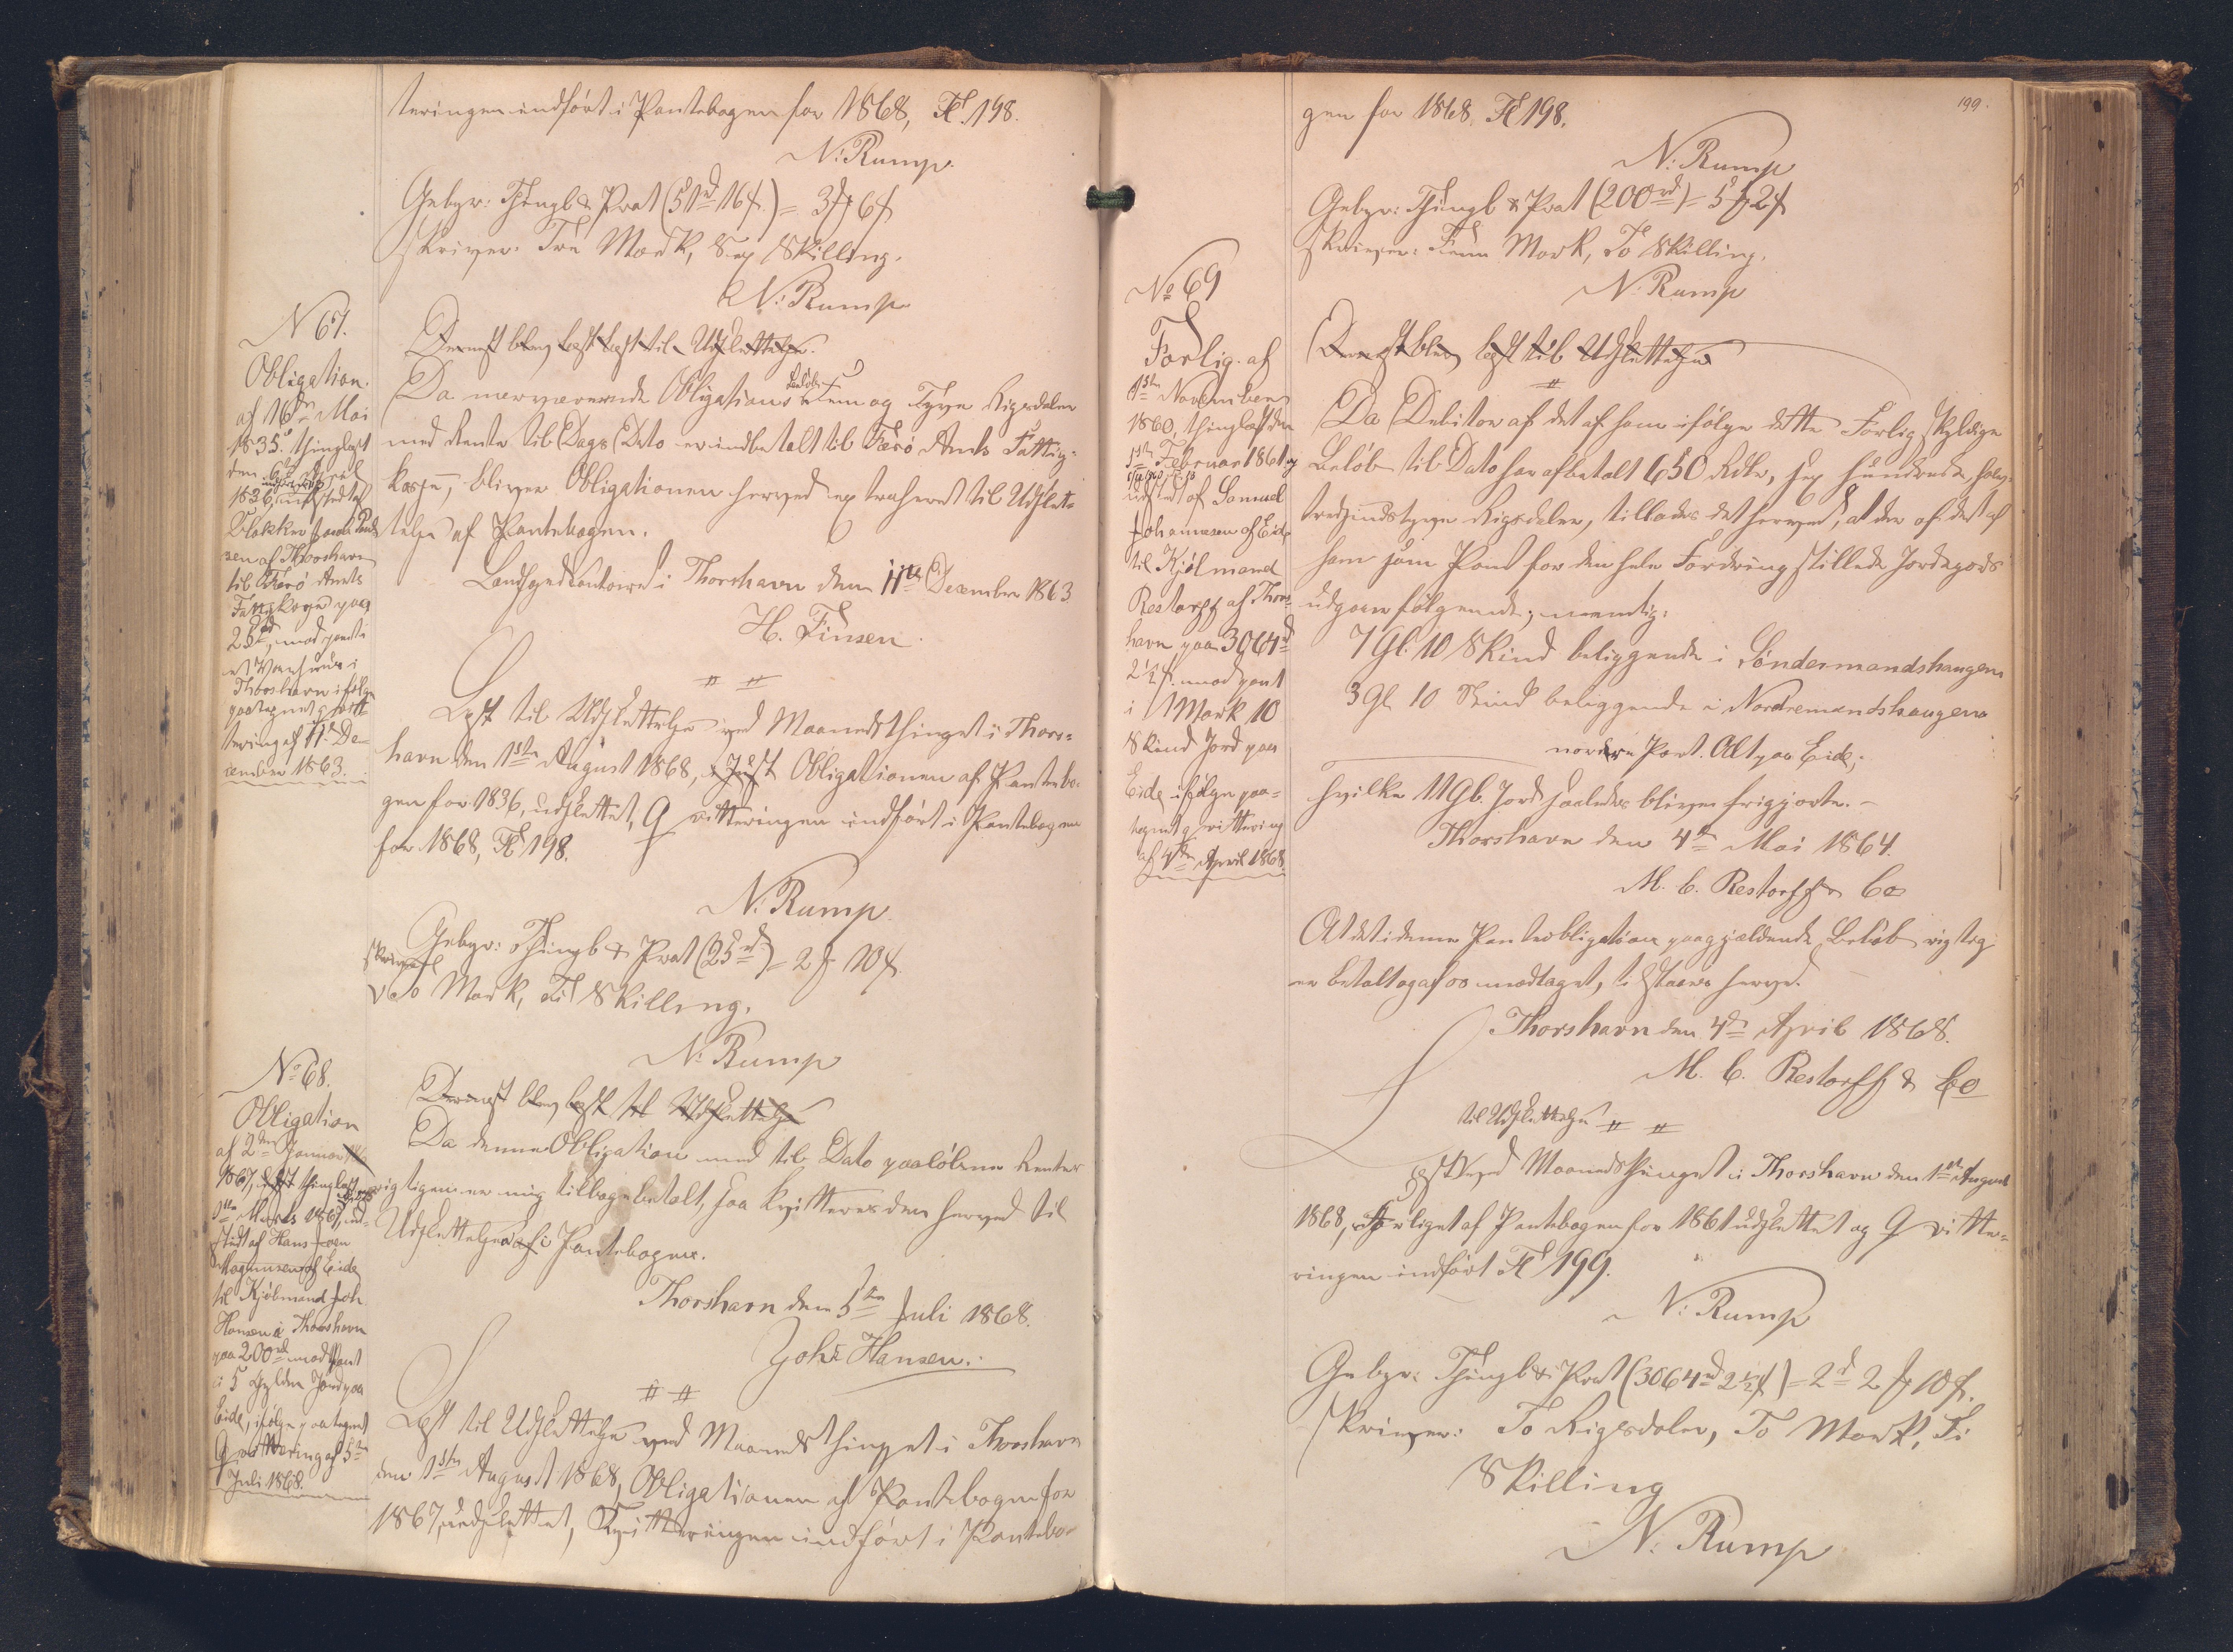 teringen indført i Pantebogen for 1868, Fl. 198.
N: Rump.
Gebyr: Thingl & Prot (51rd 16ß.) = 3 ₻ 6ß
skriver: Tre Mark, Sex Skilling.
N: Rump
N 67.
Obligation.
af 16de Mai
1835. thinglæst
den 6te April
1836, udstedt af
Blokker
sen af Thorshavn
til Færø Amts
Fattigkasse paa
25rd, mod pant i
et Vaahuus i
Thorshavn ifølge
paategnet qvit-
tering af 11te De-
cember 1863.
Dernæst blev læst til Udslettelse.
Da nærværende Obligations Beløb Fem og Tyve Rigsdaler
med Rente til Dags Dato er indbetalt til Færø Amts Fattig-
kasse, bliver Obligationen herved extraheret til Udslet-
telse af Pantebogen.
Landfogedcontoiret i Thorshavn den 11te December 1863
H. Finsen.
Læst til Udslettelse ved Maanedsthinget i Thors-
havn den 1ste August 1868, Obligationen af Pantebo-
gen for 1836, udslettet, Qvitteringen indført i Pantebogen
for 1868, Fl 198.
N: Rump.
Gebyr: Thingl & Prot (25rd) = 2 ₻ 10ß.
skriver
To Mark, Ti Skilling.
N: Rump
No 68.
Obligation
af 2den Januar
1867, thinglæst
1ste Marts 1867, ud-
stedt af Hans Joen
Magnusen af Eide
til Kjøbmand Joh.
Hansen i Thorshavn
paa 200rd mod Pant
i 5 Gylden Jord paa
Eide, ifølge paategnet
Qvittering af 5te
Juli 1868.
Dernæst blev læst til Udslettelse
Da denne Obligation med til Dato paaløbne Renter
rigtigen er mig tilbagebetalt, saa kvitteres den herved til
Udslettelse af Pantebogen.
Thorshavn den 5te Juli 1868.
Johs Hansen.
Læst til Udslettelse ved Maanedsthinget i Thorshavn
den 1ste August 1868, Obligationen af Pantebogen for
1867, udslettet, Kvitteringen indført i Pantebo-
199.
gen for 1868. Fl 198.
N: Rump
Gebyr: Thingl & Prot (200rd) = 5 ₻ 2ß
skriver: Fem Mark, To Skilling.
N: Rump
No 69
Forlig af
1ste November
1860, thinglæst den
1ste Februar 1861 og
udstedt af Samuel
Johannesen af Eide
til Kjøbmand
Restorff af Thors-
havn paa 3064rd
2½ß. mod pant
i 1 Mark 10
Skind Jord paa
Eide ifølge paa-
tegnet qvittering
af 4de April 1868.
Dernæst blev læst til Udslettelse
Da Debitor af det af ham ifølge dette Forlig skyldige
Beløb til Dato har afbetalt 650 Rdlr, sex hundrede halv-
tredsindstyve Rigsdaler, tillades det herved, at der af det af
ham som Pant for den hele Fordring stillede Jordegods
udgaaer følgende; nemlig:
7 Gl. 10 Skind beliggende i Søndermandshaugen
3 Gl 10 Skind beliggende i Nordremandshaugens
nordre Part. Alt paa Eide;
hvilke 11 Gl. Jord saaledes bliver frigjorte. -
Thorshavn den 4de Mai 1864.
M. C. Restorff & Co
At det i denne Panteobligation paagjældende Beløb rigtig
er betalt og af os modtaget, tilstaaes herved.
Thorshavn den 4de April 1868.
M. C. Restorff & Co
til Udslettelse
Læst ved Maanedsthinget i Thorshavn den 1ste August
1868, Forliget af Pantebogen for 1861 udslettet og Qvitte-
ringen indført Fl 199.
N: Rump
Gebyr: Thingl & Prot (3064rd 2½ß) = 2rd 2 ₻ 10ß.
skriver: To Rigsdaler, To Mark, Ti
Skilling
N: Rump